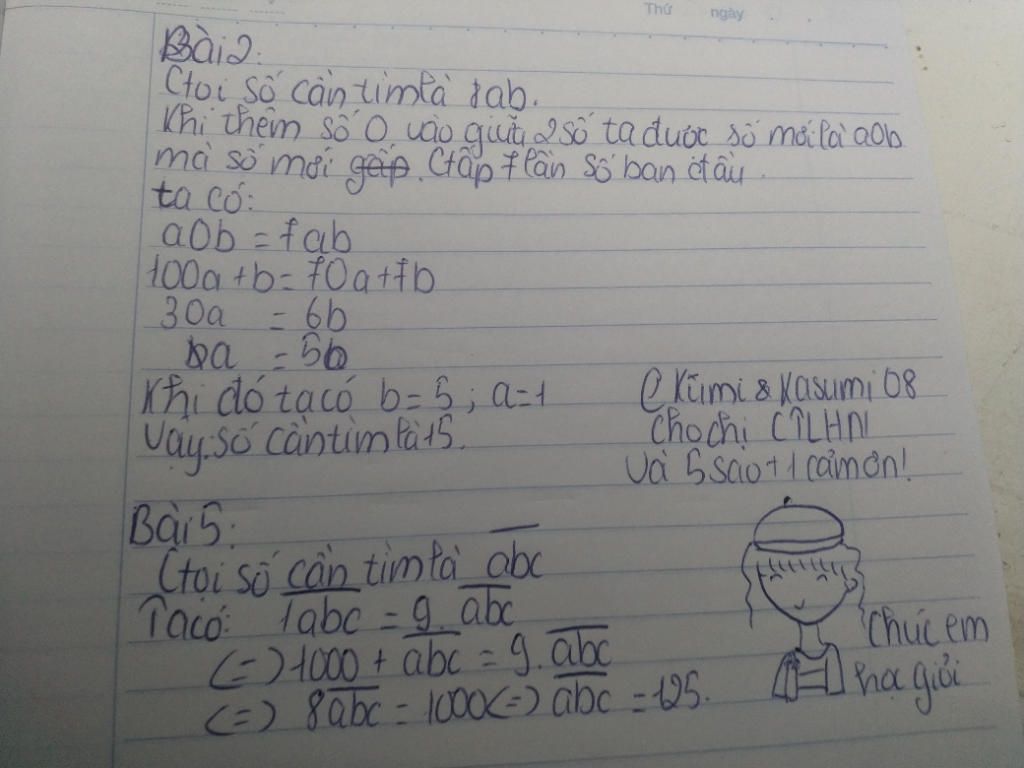 Thứ ngày
Bài 2:
Gọi số cần tìm là ab.
Khi thêm số 0 vào giữa 2 số ta được số mới là a0b
mà số mới gấp. Gấp 7 lần số ban đầu.
ta có:
a0b = 7ab
100a + b = 70a + 7b
30a = 6b
a = 5b
Khi đó ta có b = 5 ; a = 1
Vậy số cần tìm là 15.
@ Kumi & Kasumi 08
Cho chị CTLHN
và 5 sao + 1 cảm ơn!
Bài 5:
Gọi số cần tìm là abc
Ta có: 1abc = 9. abc
(=) 1000 + abc = 9. abc
(=) 8abc = 1000 (=) abc = 125.
Chúc em
học giỏi